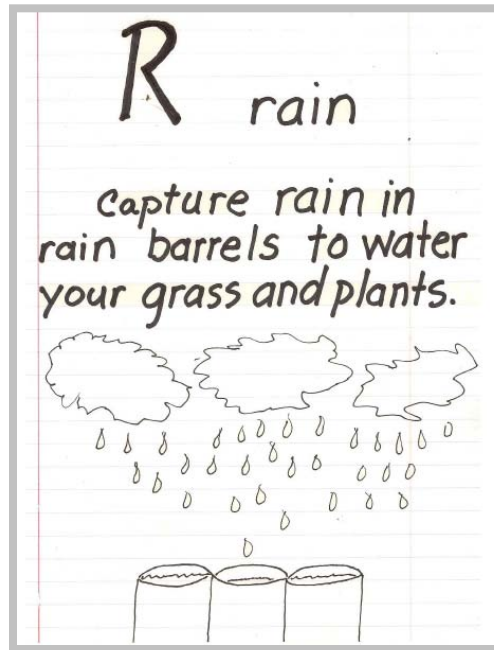 R rain
Capture rain in
rain barrels to water
your grass and plants.